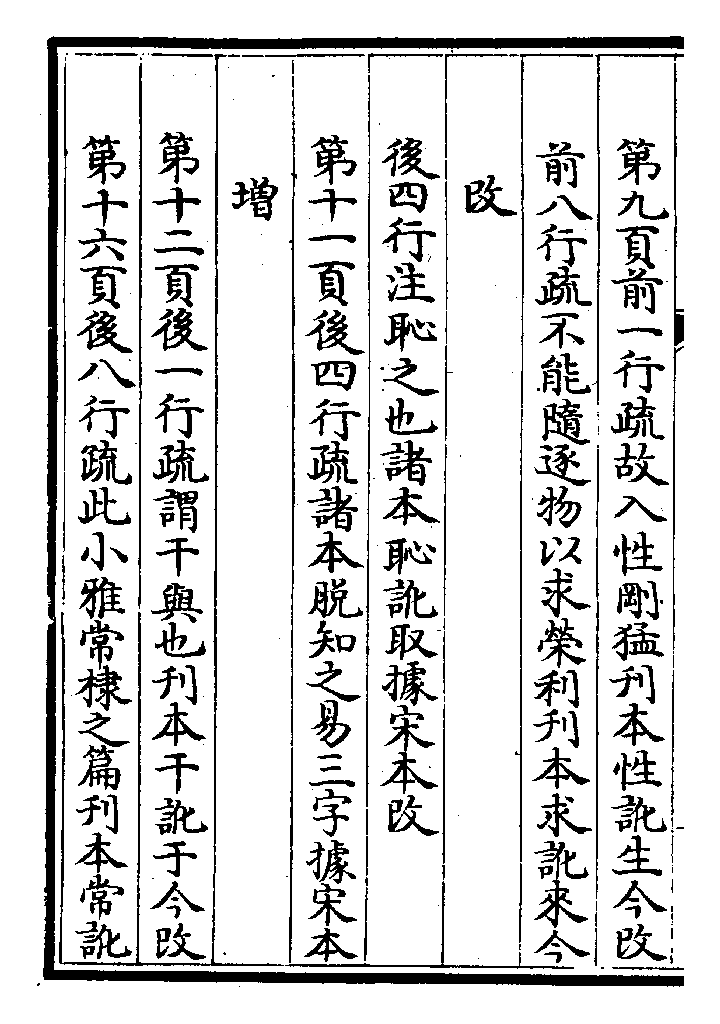 第九頁前一行疏故入性剛猛刊本性訛生今改
前八行疏不能隨逐物以求榮利刊本求訛來今
改
後四行注恥之也諸本恥訛取據宋本改
第十一頁後四行疏諸本脫知之易三字據宋本
增
第十二頁後一行疏謂干與也刊本干訛于今改
第十六頁後八行疏此小雅常棣之篇刊本常訛